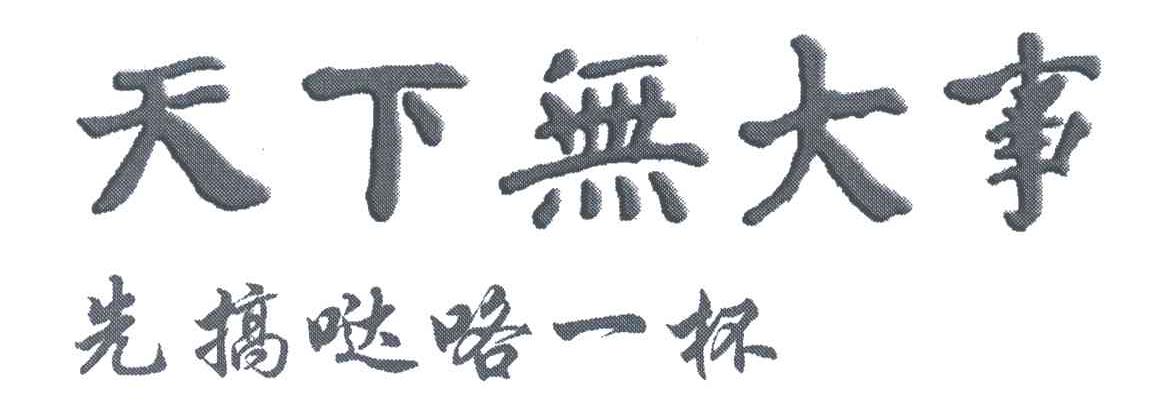 天下無大事
先搞哒咯一杯